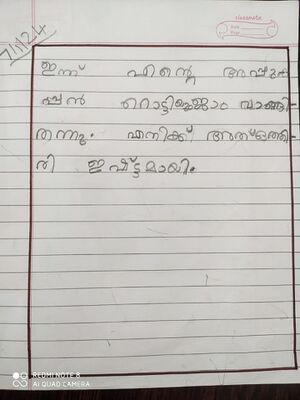 classmate
Date
Page
7/1/24
ഇന്ന് എന്റെ അപ്പുപ
പ്പൻ റൊട്ടിജ്ജാം വാങ്ങി-
തന്നു. എനിക്ക് അത് ഒത്തി-
രി ഇഷ്ട്ടമായി.
REDMI NOTE 8
AI QUAD CAMERA